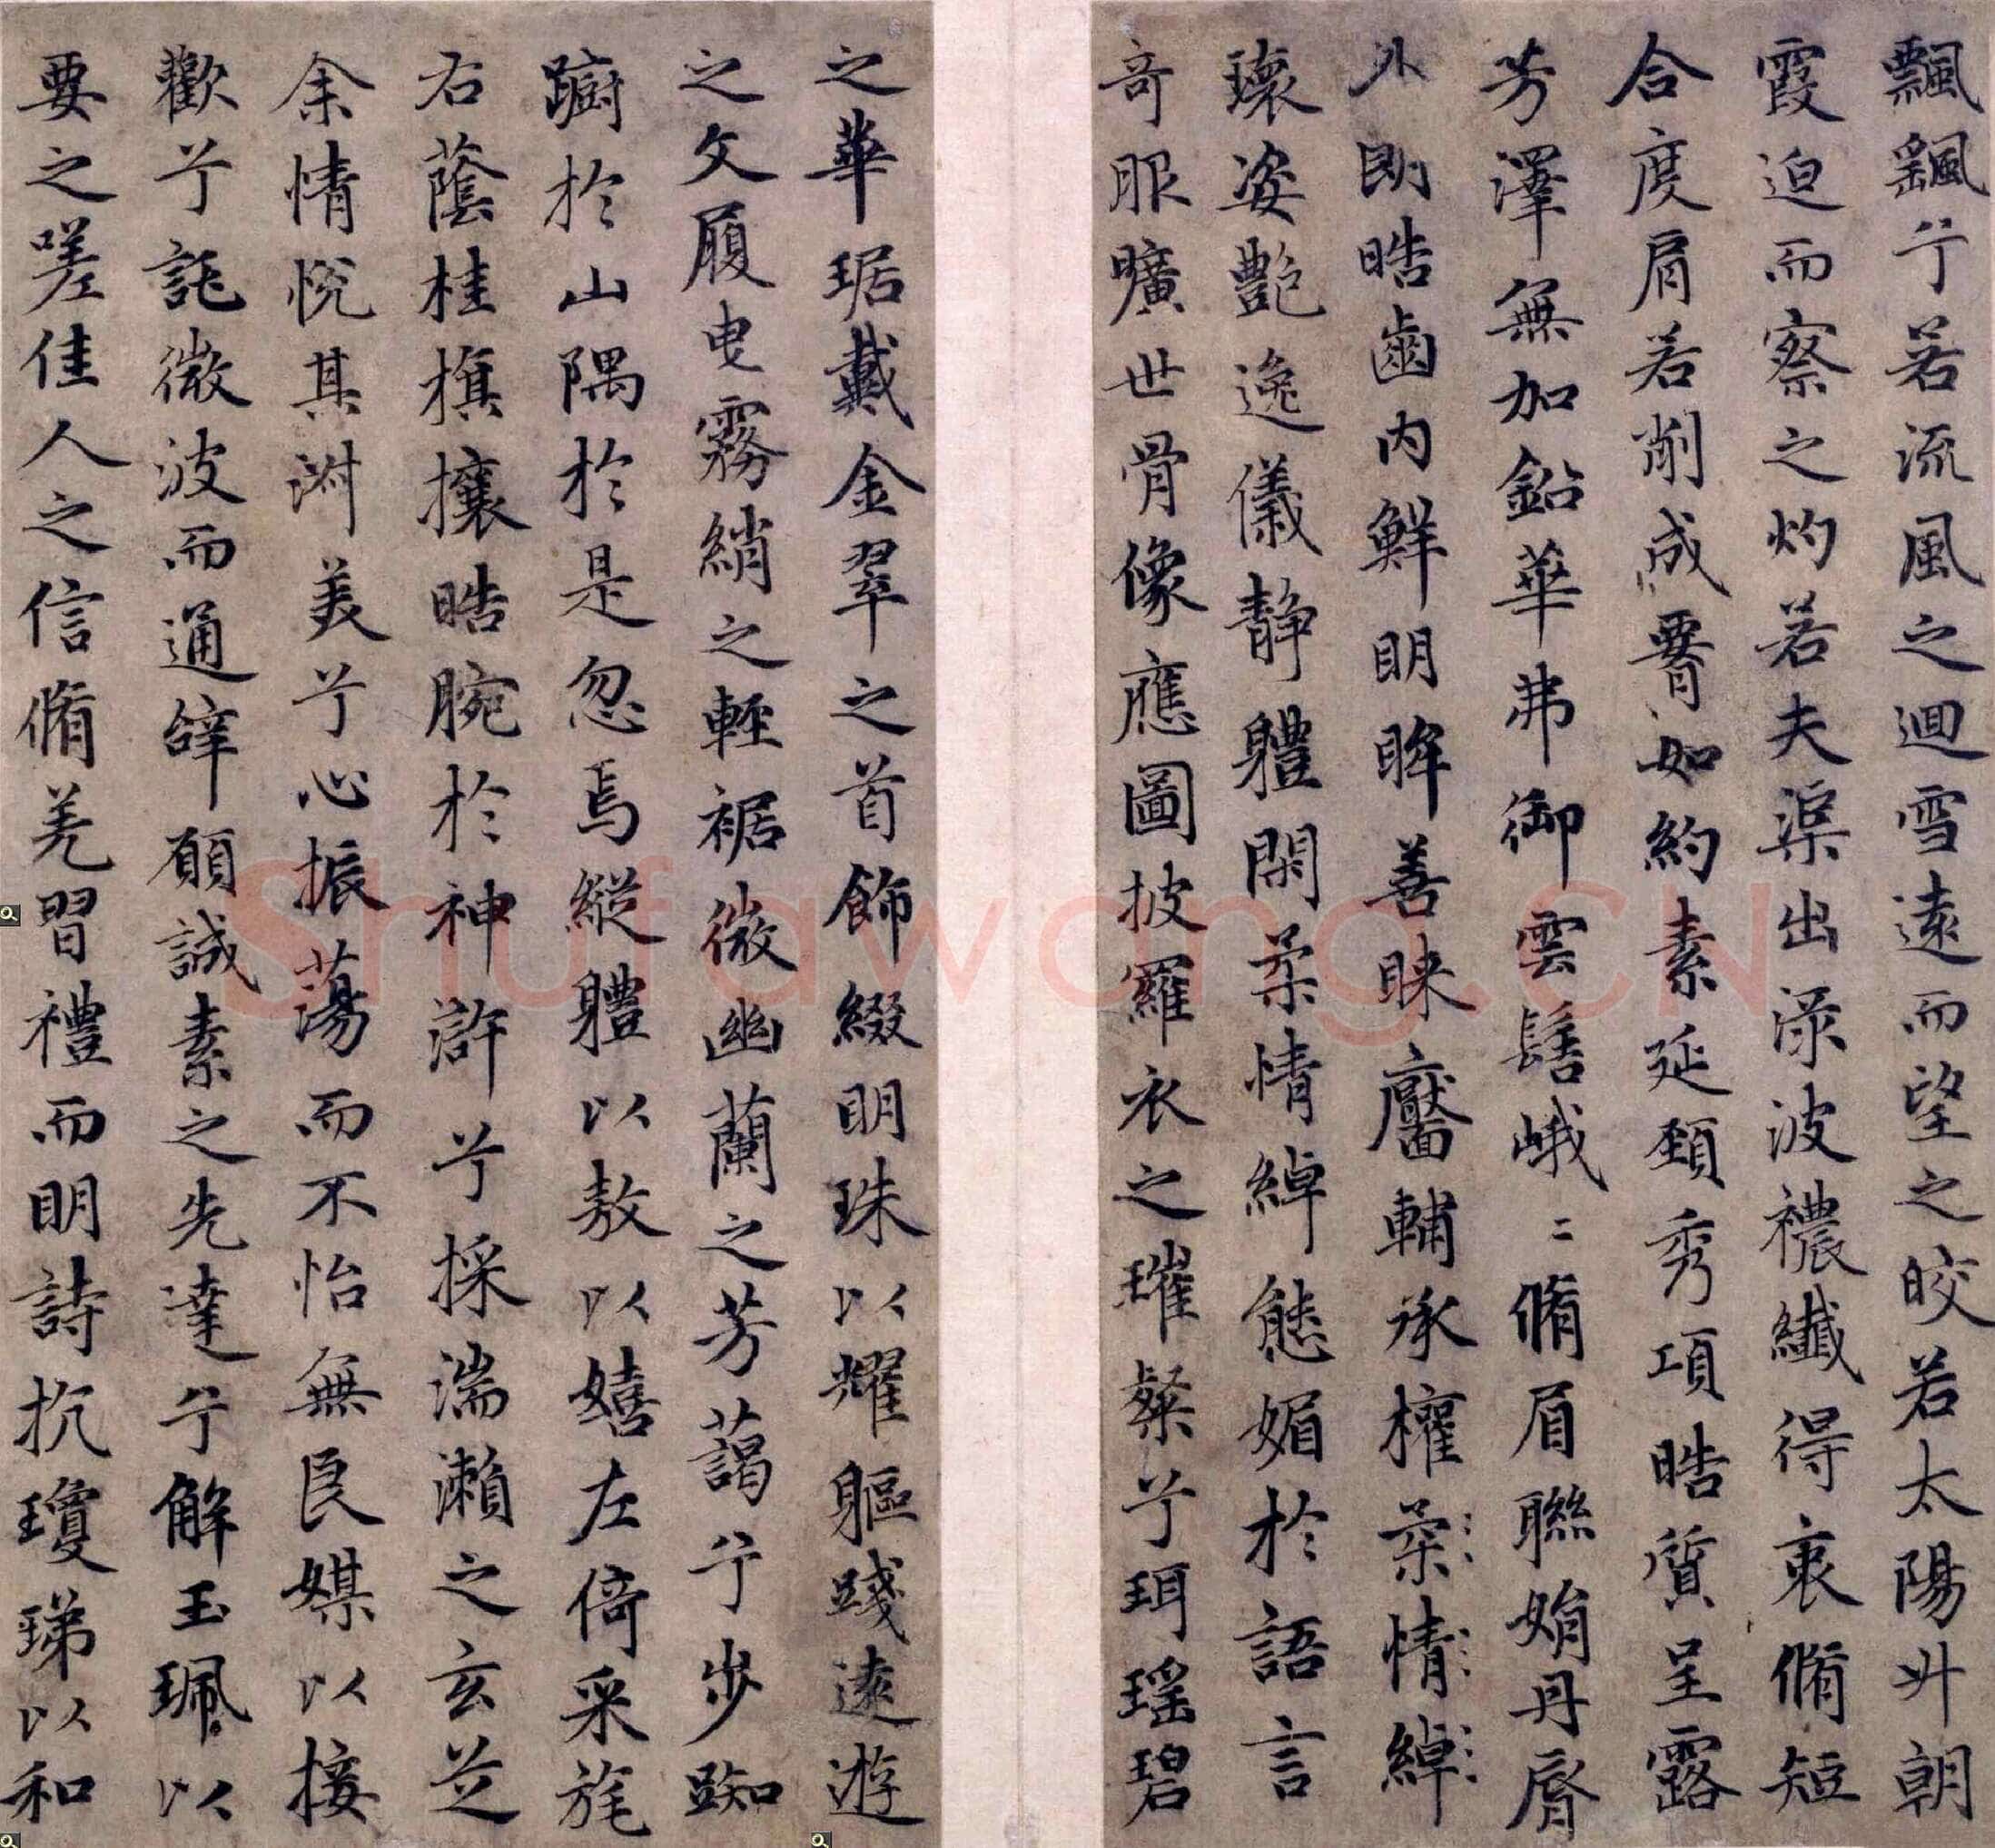 飄飖兮若流風之迴雪遠而望之皎若太陽升朝
霞迫而察之灼若夫渠出渌波襛纖得衷脩短
合度肩若削成䙅如約素延頸秀項皓質呈露
芳澤無加鉛華弗御雲髻峨〻脩眉聯娟丹脣
外朗皓齒內鮮明眸善睞靨輔承權柔情綽
瓌姿艷逸儀静軆閑柔情綽態媚於語言
奇服曠世骨像應圖披羅衣之璀粲兮珥瑶碧
之華琚戴金翠之首飾綴明珠以耀軀踐遠遊
之文履曳霧綃之輕裾微幽蘭之芳藹兮步踟
躕於山隅於是忽焉縱軆以敖以嬉左倚采旄
右蔭桂旗攘皓腕於神滸兮採湍瀨之玄芝
余情悅其淑美兮心振蕩而不怡無良媒以接
歡兮託微波而通辝願誠素之先達兮解玉珮以
要之嗟佳人之信脩羌習禮而明詩抗瓊珶以和
Shufawang.CN